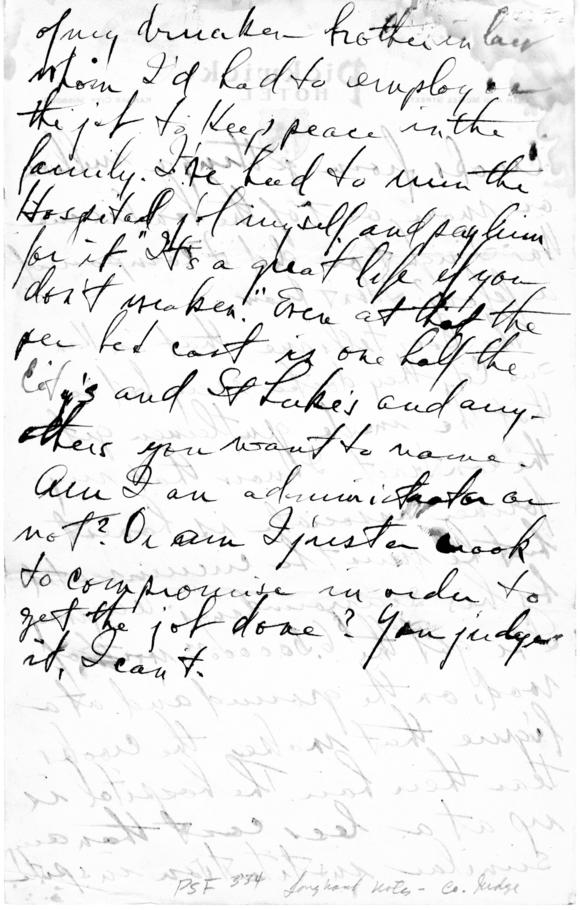 of my drunken brother in law
whom I'd had to employ on
the job to keep peace in the
family. I've had to run the
Hospital job myself and pay him
for it "It's a great life if you
don't weaken." Even at that the
per bed cost is one half the
City's and St Luke's and any-
others you want to name.
Am I an administrator or
not? Or am I just a crook
to compromise in order to
get the job done? You judge
it, I can't.
PSF 334 Longhand Notes - Co. Judge